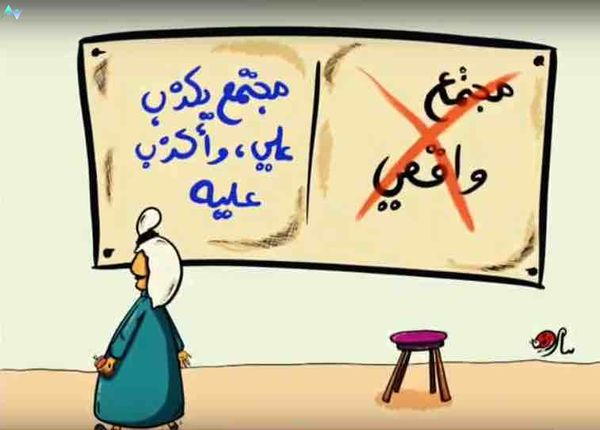 مجتمع
واقعي
مجتمع يكذب
علي، وأكذب
عليه